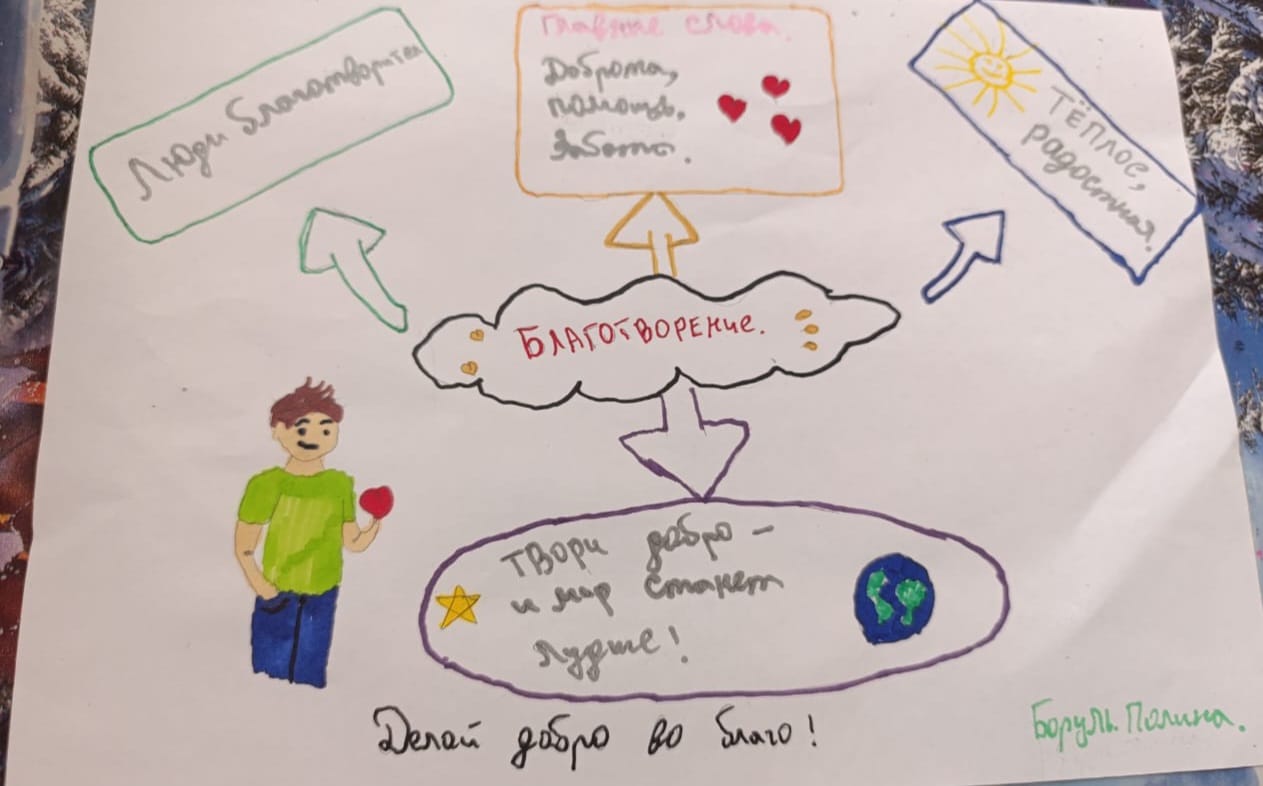 Люди благотворители
Главные слова.
Доброта,
помощь,
Забота.
Тёплое,
радостная.
БЛАГОТВОРЕНИе.
Твори добро -
и мир станет
лучше!
Делай добро во благо!
Боруль Полина.